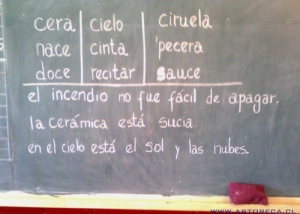 cera cielo ciruela
nace cinta pecera
doce recitar sauce
el incendio no fue fácil de apagar.
la cerámica está sucia.
en el cielo está el sol y las nubes.